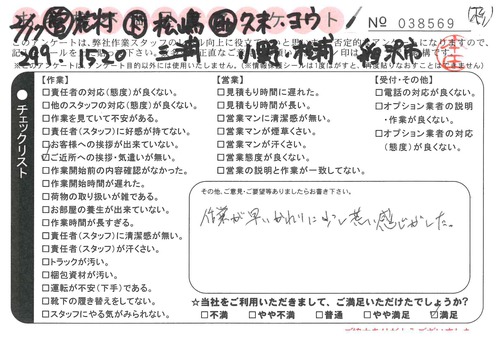 No 038569
このアンケートは、弊社作業スタッフの
【作業】
□責任者の対応(態度)が良くない。
□他のスタッフの対応(態度)が良くない。
□作業を見ていて不安がある。
□責任者(スタッフ)に好感が持てない。
□お客様への挨拶が出来ていない。
□ご近所への挨拶・気遣いが無い。
□作業開始前の内容確認がなかった。
□作業開始時間が遅れた。
□荷物の取り扱いが雑である。
□お部屋の養生が出来ていない。
□作業時間が長すぎる。
□責任者(スタッフ)に清潔感が無い。
□責任者(スタッフ)が汗くさい。
□トラックが汚い。
□梱包資材が汚い。
□運転が不安(下手)である。
□靴下の履き替えをしてない。
□スタッフにやる気がみられない。
【営業】
□見積もり時間に遅れた。
□見積もり時間が長い。
□営業マンに清潔感が無い。
□営業マンが煙草くさい。
□営業マンが汗くさい。
□営業態度が良くない。
□営業の説明と作業が一致してない。
【受付・その他】
□電話の対応が良くない。
□オプション業者の説明
・作業が良くない。
□オプション業者の対応
(態度)が良くない。
チェックリスト
その他、ご意見・ご要望等ありましたらお書き下さい。
作業が早いかわりに少し荒い感じがした。
☆当社をご利用いただきまして、ご満足いただけたでしょうか?
□不満 □やや不満 □普通 □やや満足 ☑満足